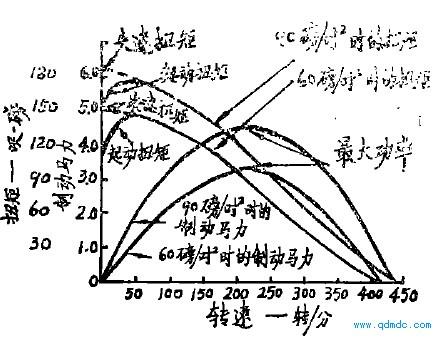 失速扭矩
起动扭矩
90磅/吋²时的扭矩
60磅/吋²时的扭矩
失速扭矩
起动扭矩
最大功率
90磅/吋²时的
制动马力
60磅/吋²时的制动马力
180 6.0
150 5.0
120 4.0
90 3.0
60 2.0
30 1.0
扭矩—吋-磅
制动马力
0 50 100 150 200 250 300 350 400 450
转速—转/分
www.qdmdc.com